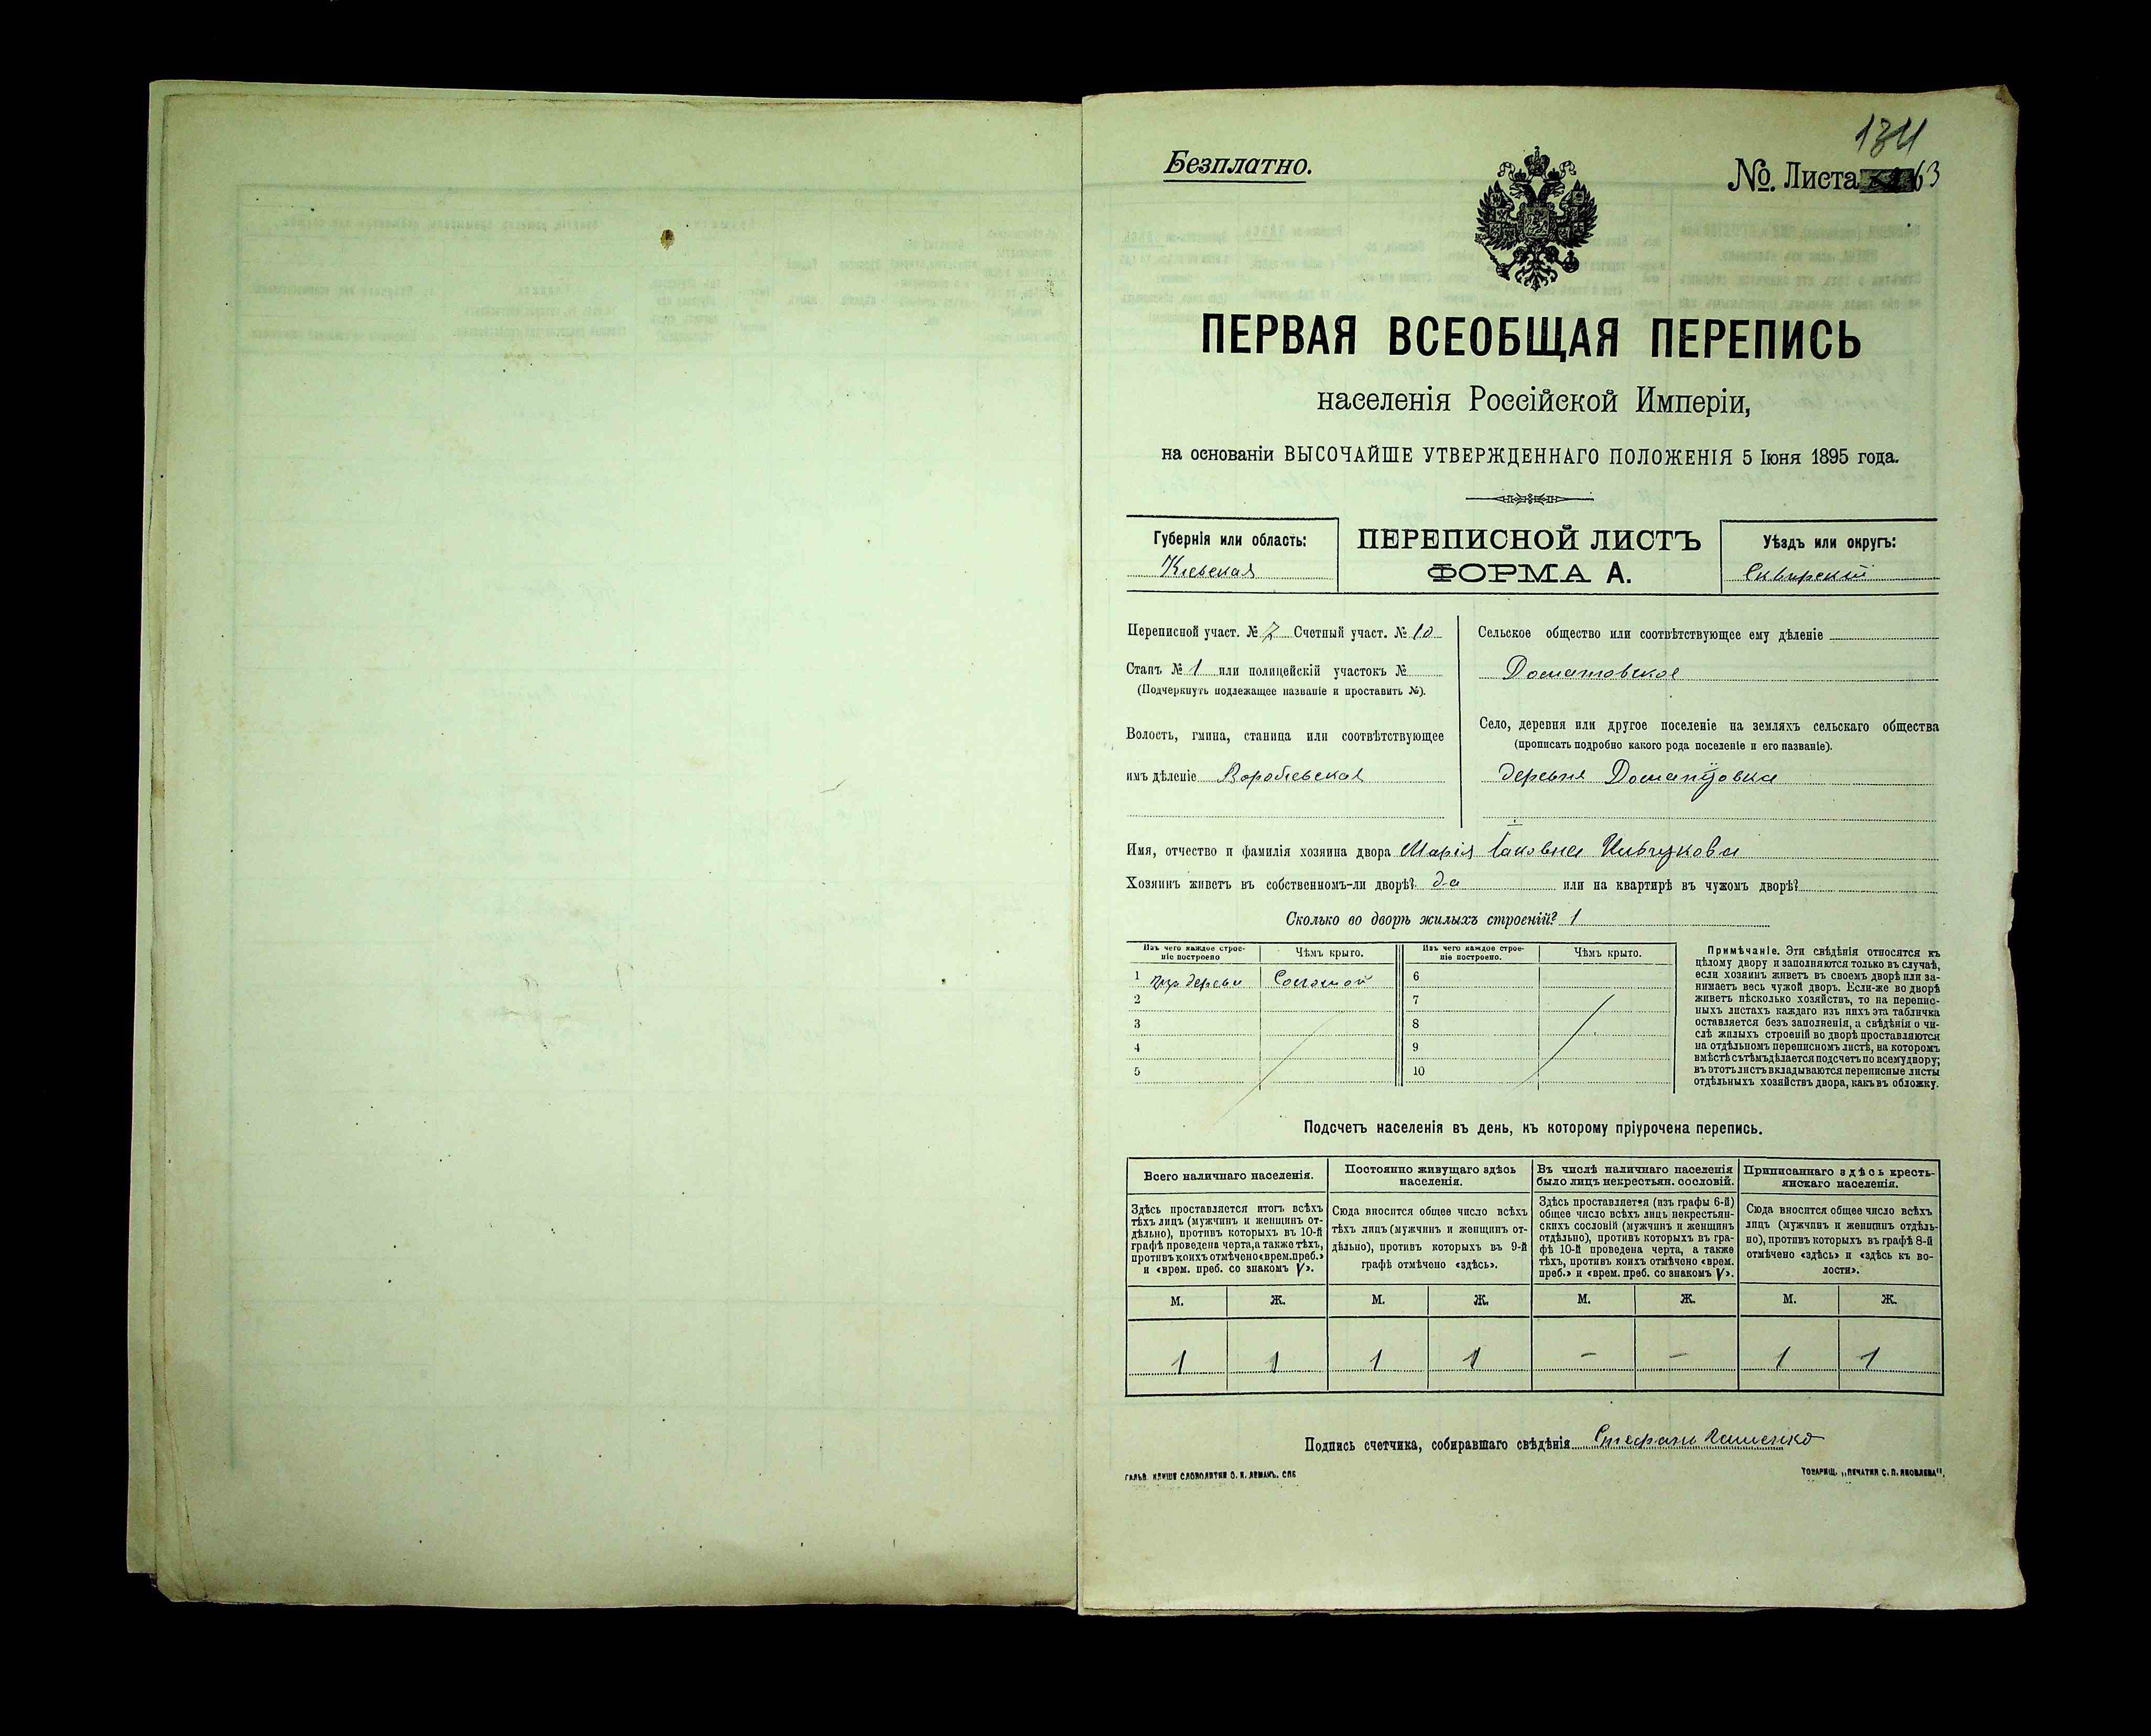 134
Безплатно.
№. Листа 63
ПЕРВАЯ ВСЕОБЩАЯ ПЕРЕПИСЬ
населенія Россійской Имперіи,
на основаніи ВЫСОЧАЙШЕ УТВЕРЖДЕННАГО ПОЛОЖЕНІЯ 5 Іюня 1895 года.
Губернія или область:
Кіевская
ПЕРЕПИСНОЙ ЛИСТЪ
ФОРМА А.
Уѣздъ или округъ:
Сквирскій
Переписной участ. № 7 Счетный участ. № 10
Станъ № 1 или полицейскій участокъ №
(Подчеркнуть подлежащее названіе и проставить №).
Волость, гмина, станица или соотвѣтствующее
имъ дѣленіе
Сельское общество или соотвѣтствующее ему дѣленіе
Село, деревня или другое поселеніе на земляхъ сельскаго общества
(прописать подробно какого рода поселеніе и его названіе).
деревня
Имя, отчество и фамилія хозяина двора Марія
Хозяинъ живетъ въ собственномъ-ли дворѣ? да или на квартирѣ въ чужомъ дворѣ?
Сколько во дворѣ жилыхъ строеній? 1
Изъ чего каждое строе-
ніе построено
Чѣмъ крыто.
Изъ чего каждое строе-
ніе построено.
Чѣмъ крыто.
1 дерева Соломой 6
2 7
3 8
4 9
5 10
Примѣчаніе. Эти свѣдѣнія относятся къ
цѣлому двору и заполняются только въ случаѣ,
если хозяинъ живетъ въ своемъ дворѣ или за-
нимаетъ весь чужой дворъ. Если-же во дворѣ
живетъ нѣсколько хозяйствъ, то на перепис-
ныхъ листахъ каждаго изъ нихъ эта табличка
оставляется безъ заполненія, а свѣдѣнія о чи-
слѣ жилыхъ строеній во дворѣ проставляются
на отдѣльномъ переписномъ листѣ, на которомъ
вмѣстѣ съ тѣмъ дѣлается подсчетъ по всему двору;
въ этотъ листъ вкладываются переписные листы
отдѣльныхъ хозяйствъ двора, какъ въ обложку.
Подсчетъ населенія въ день, къ которому пріурочена перепись.
Всего наличнаго населенія.
Здѣсь проставляется итогъ всѣхъ
тѣхъ лицъ (мужчинъ и женщинъ от-
дѣльно), противъ которыхъ въ 10-й
графѣ проведена черта, а также тѣхъ,
противъ коихъ отмѣчено «врем. преб.»
и «врем. преб. со знакомъ V».
Постоянно живущаго здѣсь
населенія.
Сюда вносится общее число всѣхъ
тѣхъ лицъ (мужчинъ и женщинъ от-
дѣльно), противъ которыхъ въ 9-й
графѣ отмѣчено «здѣсь».
Въ числѣ наличнаго населенія
было лицъ некрестьян. сословій.
Здѣсь проставляется (изъ графы 6-й)
общее число всѣхъ лицъ некрестьян-
скихъ сословій (мужчинъ и женщинъ
отдѣльно), противъ которыхъ въ гра-
фѣ 10-й проведена черта, а также
тѣхъ, противъ коихъ отмѣчено «врем.
преб.» и «врем. преб. со знакомъ V».
Приписаннаго здѣсь кресть-
янскаго населенія.
Сюда вносится общее число всѣхъ
лицъ (мужчинъ и женщинъ отдѣль-
но), противъ которыхъ въ графѣ 8-й
отмѣчено «здѣсь» и «здѣсь къ во-
лости».
М. Ж. М. Ж. М. Ж. М. Ж.
1 1 1 1 – – 1 1
Подпись счетчика, собиравшаго свѣдѣнія Стефанъ
ГАЛЬВ. КЛИШЕ СЛОВОЛИТНИ О. И. ЛЕМАНЪ. СПБ
ТОВАРИЩ. „ПЕЧАТНЯ С. П. ЯКОВЛЕВА“.